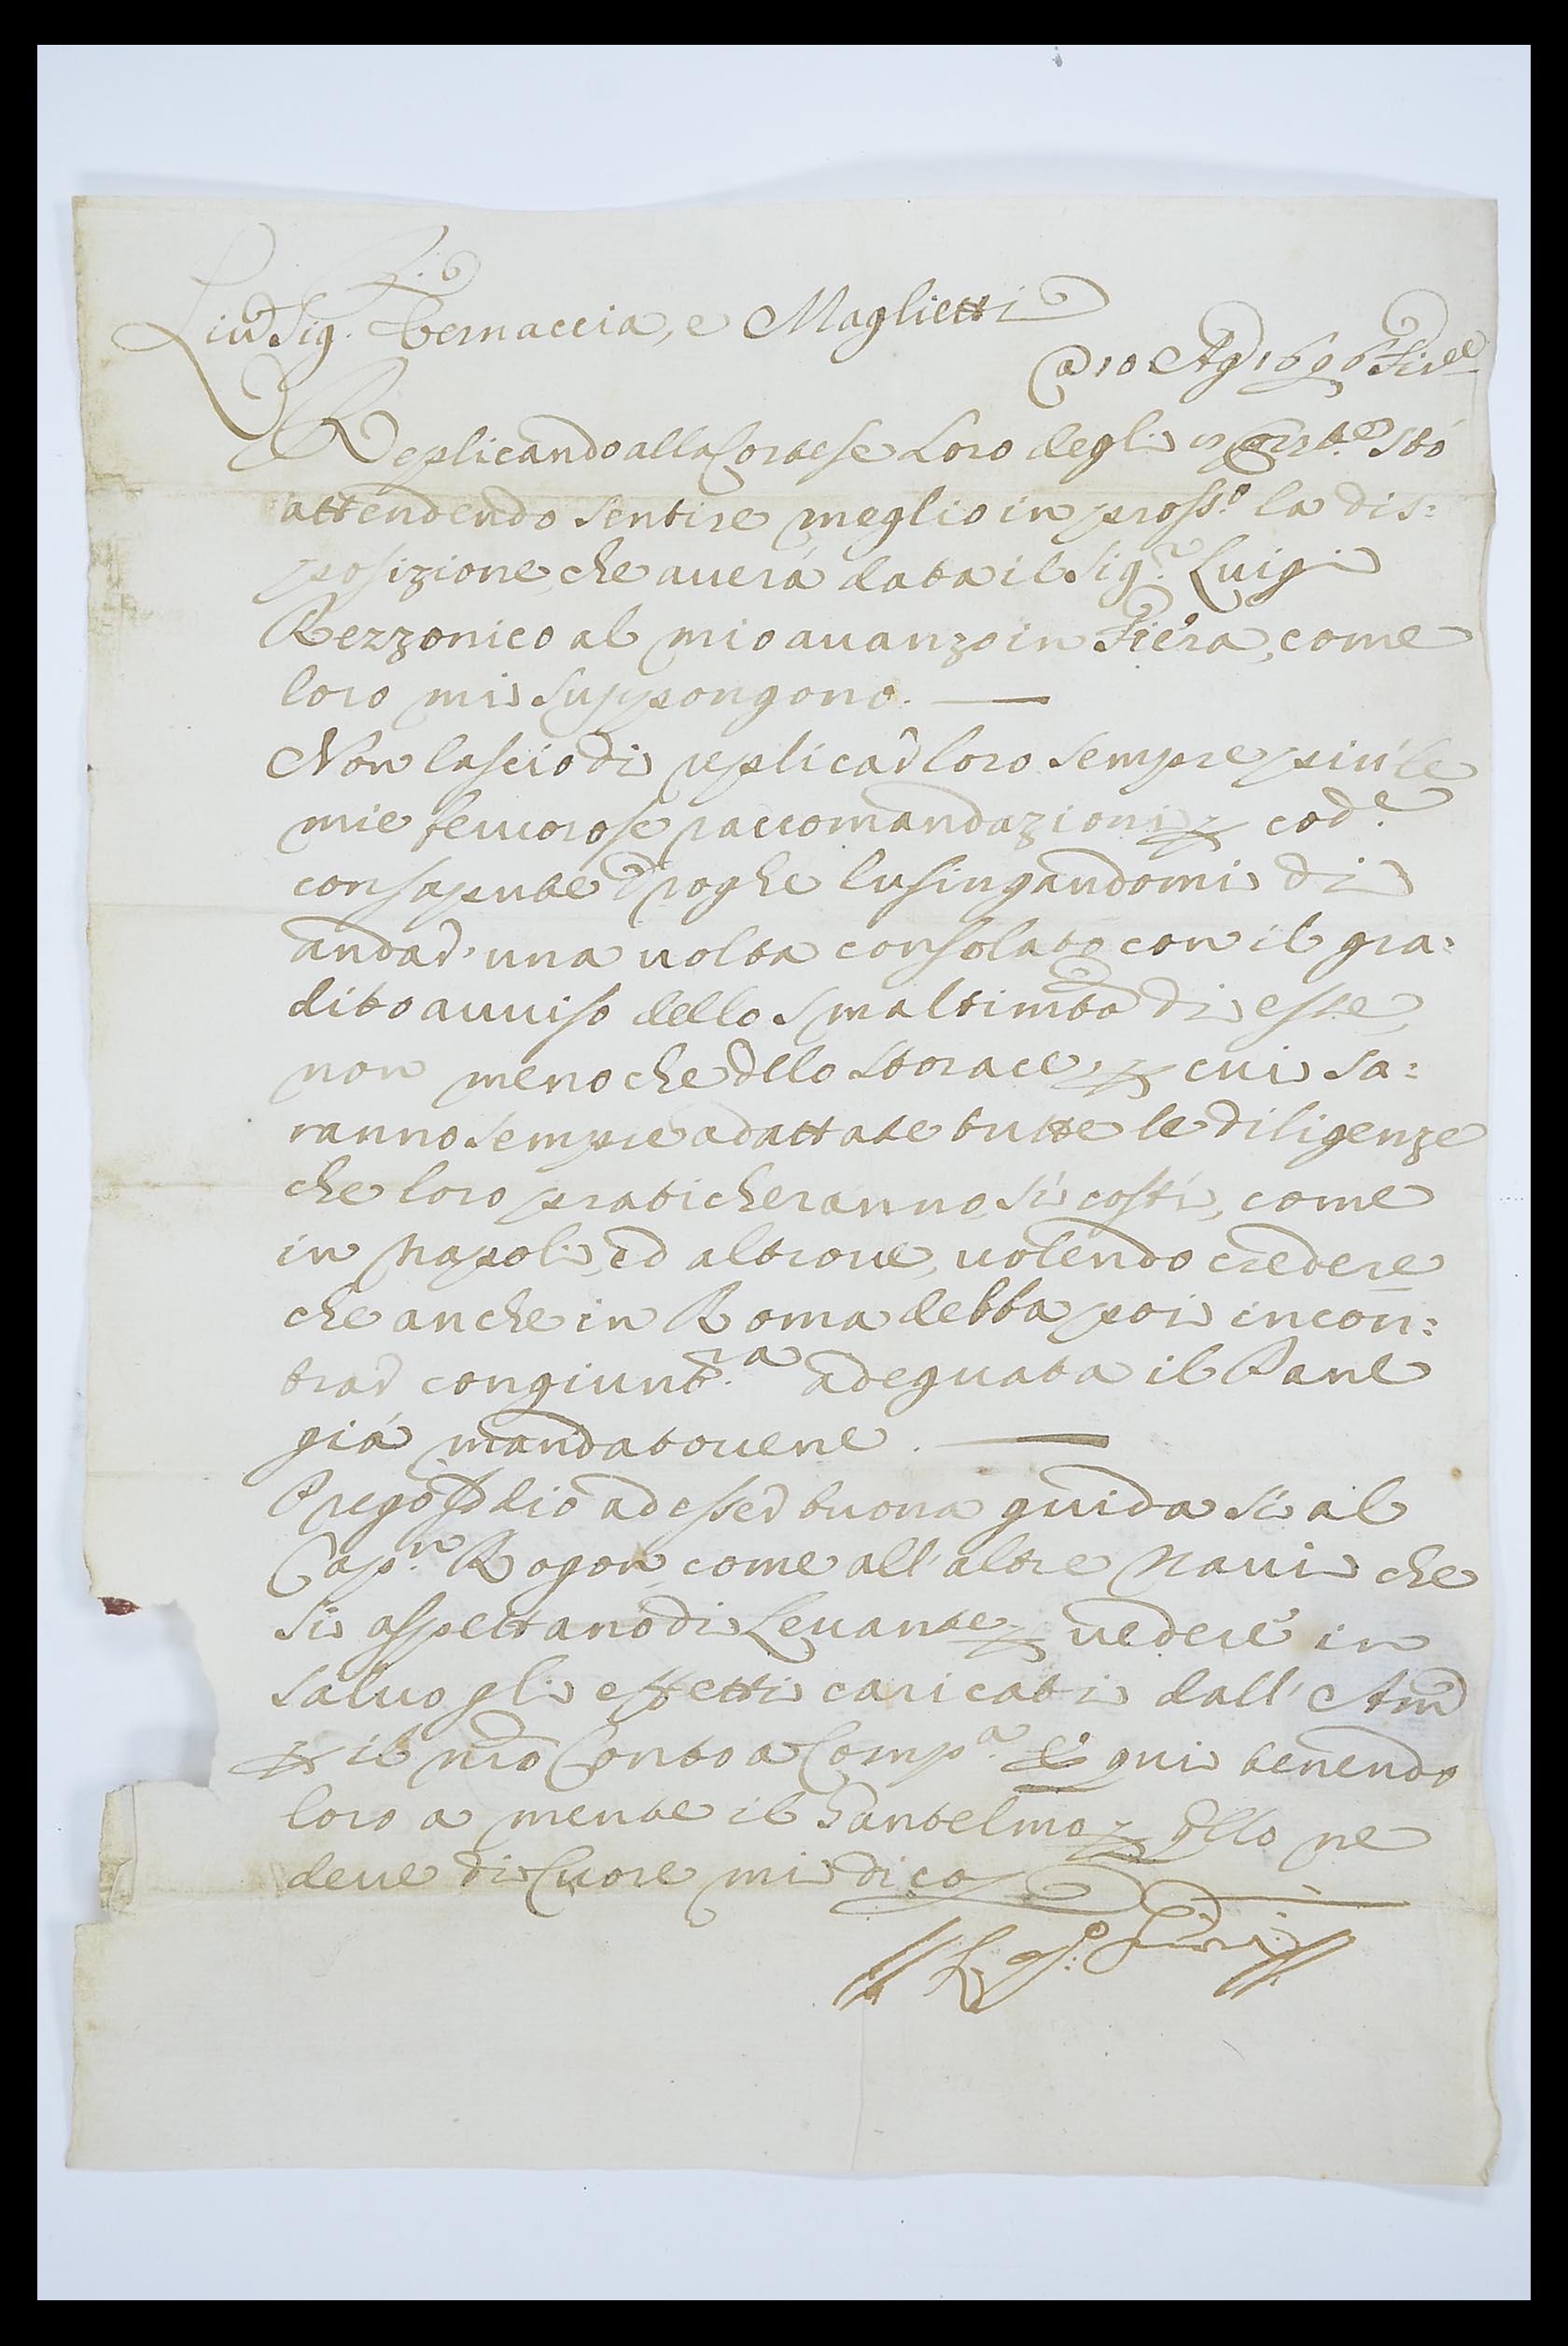 Liu.º Sig.ri Bernaccia, e Maglietti
@ 10 Ag.º 1696 Fir.e
Replicando alla Cortese Loro degli corr.te stó
attendendo sentire meglio in pross.º la dis:
posizione, che auerá data il Sig.r Luigi
Rezzonico al mio auanzo in Fiera, come
loro mi suppongono.
Non lascio di replicar loro sempre piú le
mie feruorose raccomandazioni p cod.e
consapute Droghe lusingandomi di
andar' una uolta consolato con il gra:
dito auuiso dello smaltimto di esse,
non meno che dello storace, p cui sa:
ranno sempre adattate tutte le diligenze
che loro praticheranno, sí costí, come
in Napoli, ed altroue, uolendo credere
che anche in Roma debba poi incon:
trar congiunt.ra adeguata il Pane
giá mandatouene.
Prego Iddio ad esser buona guida sí al
Cap.n Rogon, come all'altre Naui che
si aspettano di Leuante, p uedere in
saluo gli effetti caricati dall' Am.º
p il mio Conto a Comp.a E qui tenendo
loro a mente il Santelmo p qllo ne
deue di Cuore mi dico